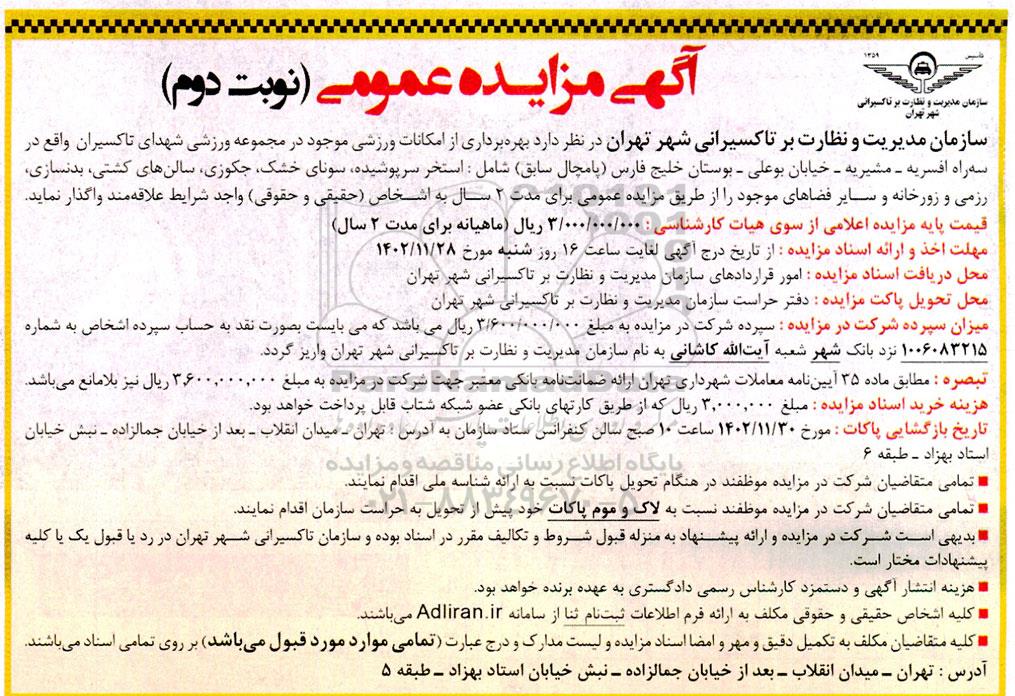 تاسیس ۱۳۵۹
سازمان مدیریت و نظارت بر تاکسیرانی
شهر تهران
آگهی مزایده عمومی (نوبت دوم)
سازمان مدیریت و نظارت بر تاکسیرانی شهر تهران در نظر دارد بهره‌برداری از امکانات ورزشی موجود در مجموعه ورزشی شهدای تاکسیران واقع در
سه‌راه افسریه ـ مشیریه ـ خیابان بوعلی ـ بوستان خلیج فارس (پامچال سابق) شامل : استخر سرپوشیده، سونای خشک، جکوزی، سالن‌های کشتی، بدنسازی،
رزمی و زورخانه و سایر فضاهای موجود را از طریق مزایده عمومی برای مدت ۲ سال به اشخاص (حقیقی و حقوقی) واجد شرایط علاقه‌مند واگذار نماید.
قیمت پایه مزایده اعلامی از سوی هیات کارشناسی : ۳/۰۰۰/۰۰۰/۰۰۰ ریال (ماهیانه برای مدت ۲ سال)
مهلت اخذ و ارائه اسناد مزایده : از تاریخ درج آگهی لغایت ساعت ۱۶ روز شنبه مورخ ۱۴۰۲/۱۱/۲۸
محل دریافت اسناد مزایده : امور قراردادهای سازمان مدیریت و نظارت بر تاکسیرانی شهر تهران
محل تحویل پاکت مزایده : دفتر حراست سازمان مدیریت و نظارت بر تاکسیرانی شهر تهران
میزان سپرده شرکت در مزایده : سپرده شرکت در مزایده به مبلغ ۳/۶۰۰/۰۰۰/۰۰۰ ریال می باشد که می بایست بصورت نقد به حساب سپرده اشخاص به شماره
۱۰۰۶۰۸۳۲۱۵ نزد بانک شهر شعبه آیت‌الله کاشانی به نام سازمان مدیریت و نظارت بر تاکسیرانی شهر تهران واریز گردد.
تبصره : مطابق ماده ۳۵ آیین‌نامه معاملات شهرداری تهران ارائه ضمانت‌نامه بانکی معتبر جهت شرکت در مزایده به مبلغ ۳,۶۰۰,۰۰۰,۰۰۰ ریال نیز بلامانع می‌باشد.
هزینه خرید اسناد مزایده : مبلغ ۳,۰۰۰,۰۰۰ ریال که از طریق کارتهای بانکی عضو شبکه شتاب قابل پرداخت خواهد بود.
تاریخ بازگشایی پاکات : مورخ ۱۴۰۲/۱۱/۳۰ ساعت ۱۰ صبح سالن کنفرانس ستاد سازمان به آدرس : تهران ـ میدان انقلاب ـ بعد از خیابان جمالزاده ـ نبش خیابان
استاد بهزاد ـ طبقه ۶
پایگاه اطلاع رسانی مناقصه و مزایده
۰۲۱-۸۸۳۴۹۶۷۰-۵
■ تمامی متقاضیان شرکت در مزایده موظفند در هنگام تحویل پاکات نسبت به ارائه شناسه ملی اقدام نمایند.
■ تمامی متقاضیان شرکت در مزایده موظفند نسبت به لاک و موم پاکات خود پیش از تحویل به حراست سازمان اقدام نمایند.
■ بدیهی است شرکت در مزایده و ارائه پیشنهاد به منزله قبول شروط و تکالیف مقرر در اسناد بوده و سازمان تاکسیرانی شهر تهران در رد یا قبول یک یا کلیه
پیشنهادات مختار است.
■ هزینه انتشار آگهی و دستمزد کارشناس رسمی دادگستری به عهده برنده خواهد بود.
■ کلیه اشخاص حقیقی و حقوقی مکلف به ارائه فرم اطلاعات ثبت‌نام ثنا از سامانه Adliran.ir می‌باشند.
■ کلیه متقاضیان مکلف به تکمیل دقیق و مهر و امضا اسناد مزایده و لیست مدارک و درج عبارت (تمامی موارد مورد قبول می‌باشد) بر روی تمامی اسناد می‌باشند.
آدرس : تهران ـ میدان انقلاب ـ بعد از خیابان جمالزاده ـ نبش خیابان استاد بهزاد ـ طبقه ۵